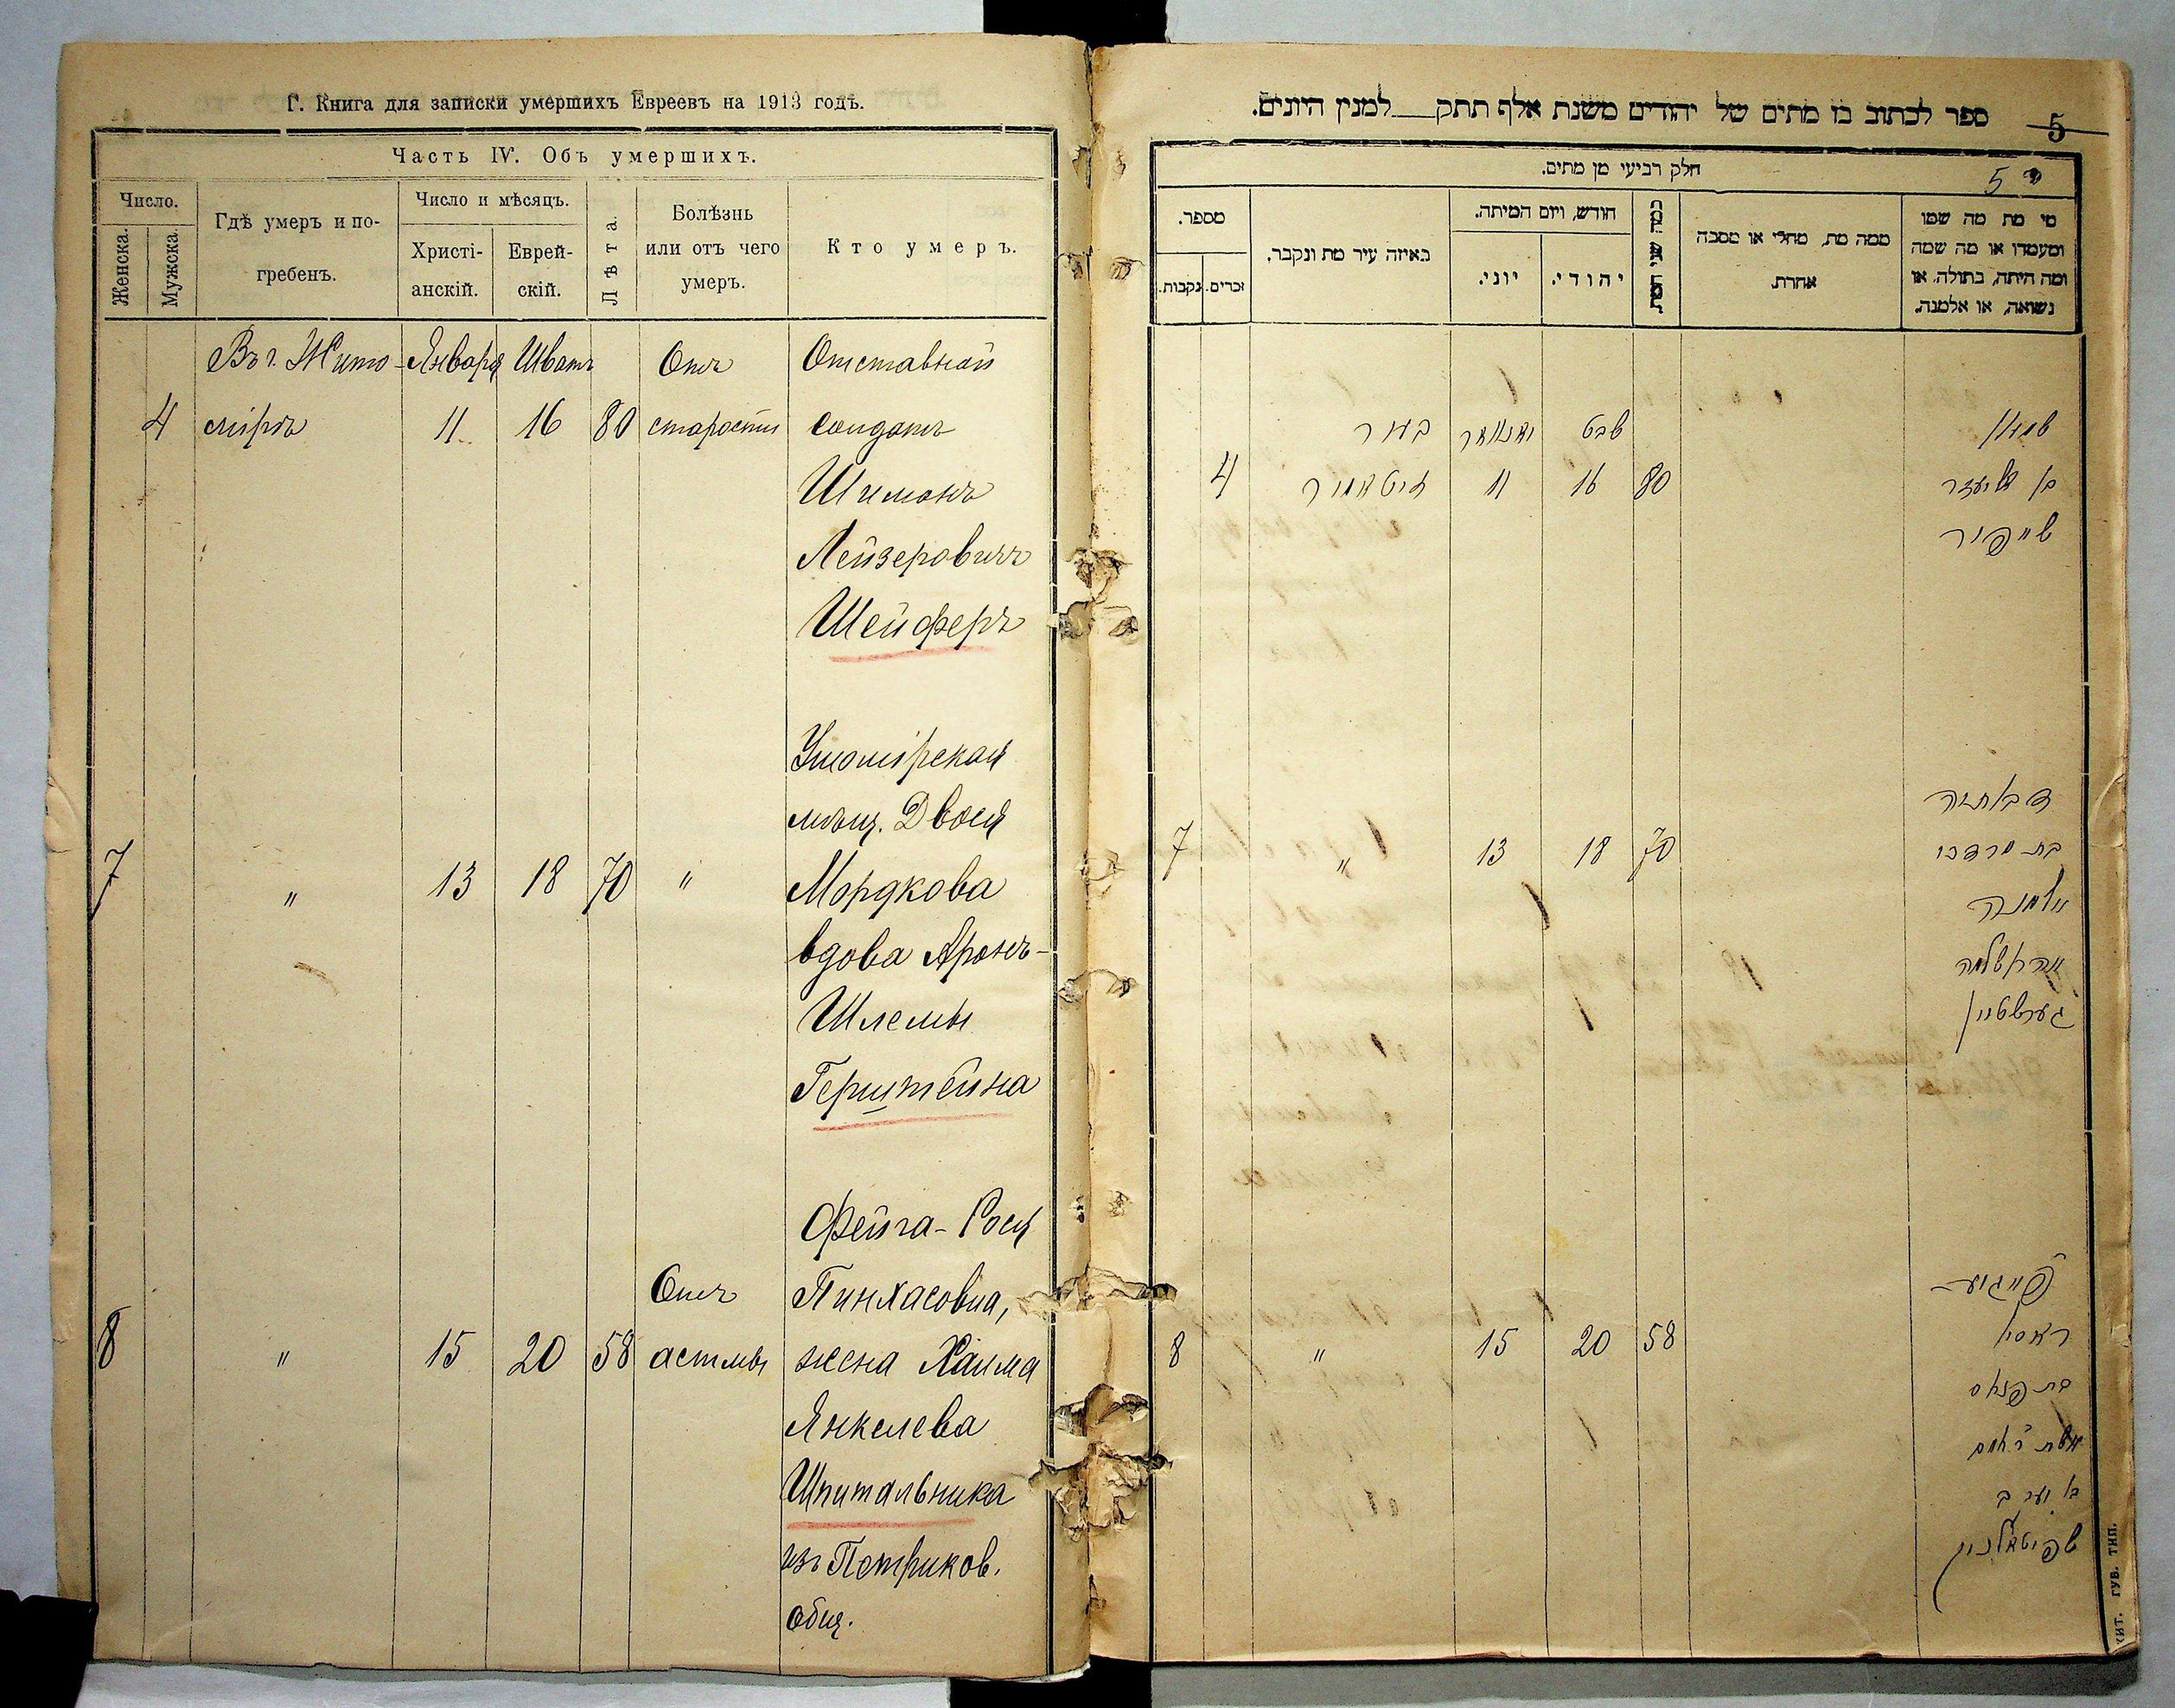 Г. Книга для записки умершихъ Евреевъ на 1913 годъ.
Часть IV. Объ умершихъ.
Число.
Женска.
Мужска.
Гдѣ умеръ и по-
гребенъ.
Число и мѣсяцъ.
Христі-
анскій.
Еврей-
скій.
Лѣта.
Болѣзнь
или отъ чего
умеръ.
Кто умеръ.
Въ г. Жито- Января Шватъ Отъ Отставной
4 мірѣ 11 16 80 старости солдатъ
Шимонъ
Лейзеровичъ
Шейферъ
мѣщ. Двося
7 " 13 18 70 " Мордкова
вдова Аронъ-
Шлемы
Герштейна
Фейга-Рося
Отъ Пинхасовна,
8 " 15 20 58 астмы жена Хаима
Янкелева
Шпитальника
изъ Петриков.
общ.
ספר לכתוב בו מתים של יהודים משנת אלף תתק למנין היונים.
5
חלק רביעי מן מתים.
5
מספר.
נקבות.
זכרים.
באיזה עיר מת ונקבר.
חודש, ויום המיתה.
יוני.
יהודי.
כמה שני המת
ממה מת, מחלי או מסבה
אחרת.
מי מת מה שמו
ומעמדו או מה שמה
ומה היתה, בתולה, או
נשואה, או אלמנה.
בעיר יאנואר שבט שמעון
4 זיטאמיר 11 16 80 בן אליעזר
שייפער
7 " 13 18 70 בת מרדכי
אלמנה
אהרן שלמה
גערשטיין
פייגע-
8 " 15 20 58 ראסי
בת פנחס
אשת חיים
בן יעקב
שפיטאלניק
ЖИТ. ГУБ. ТИП.